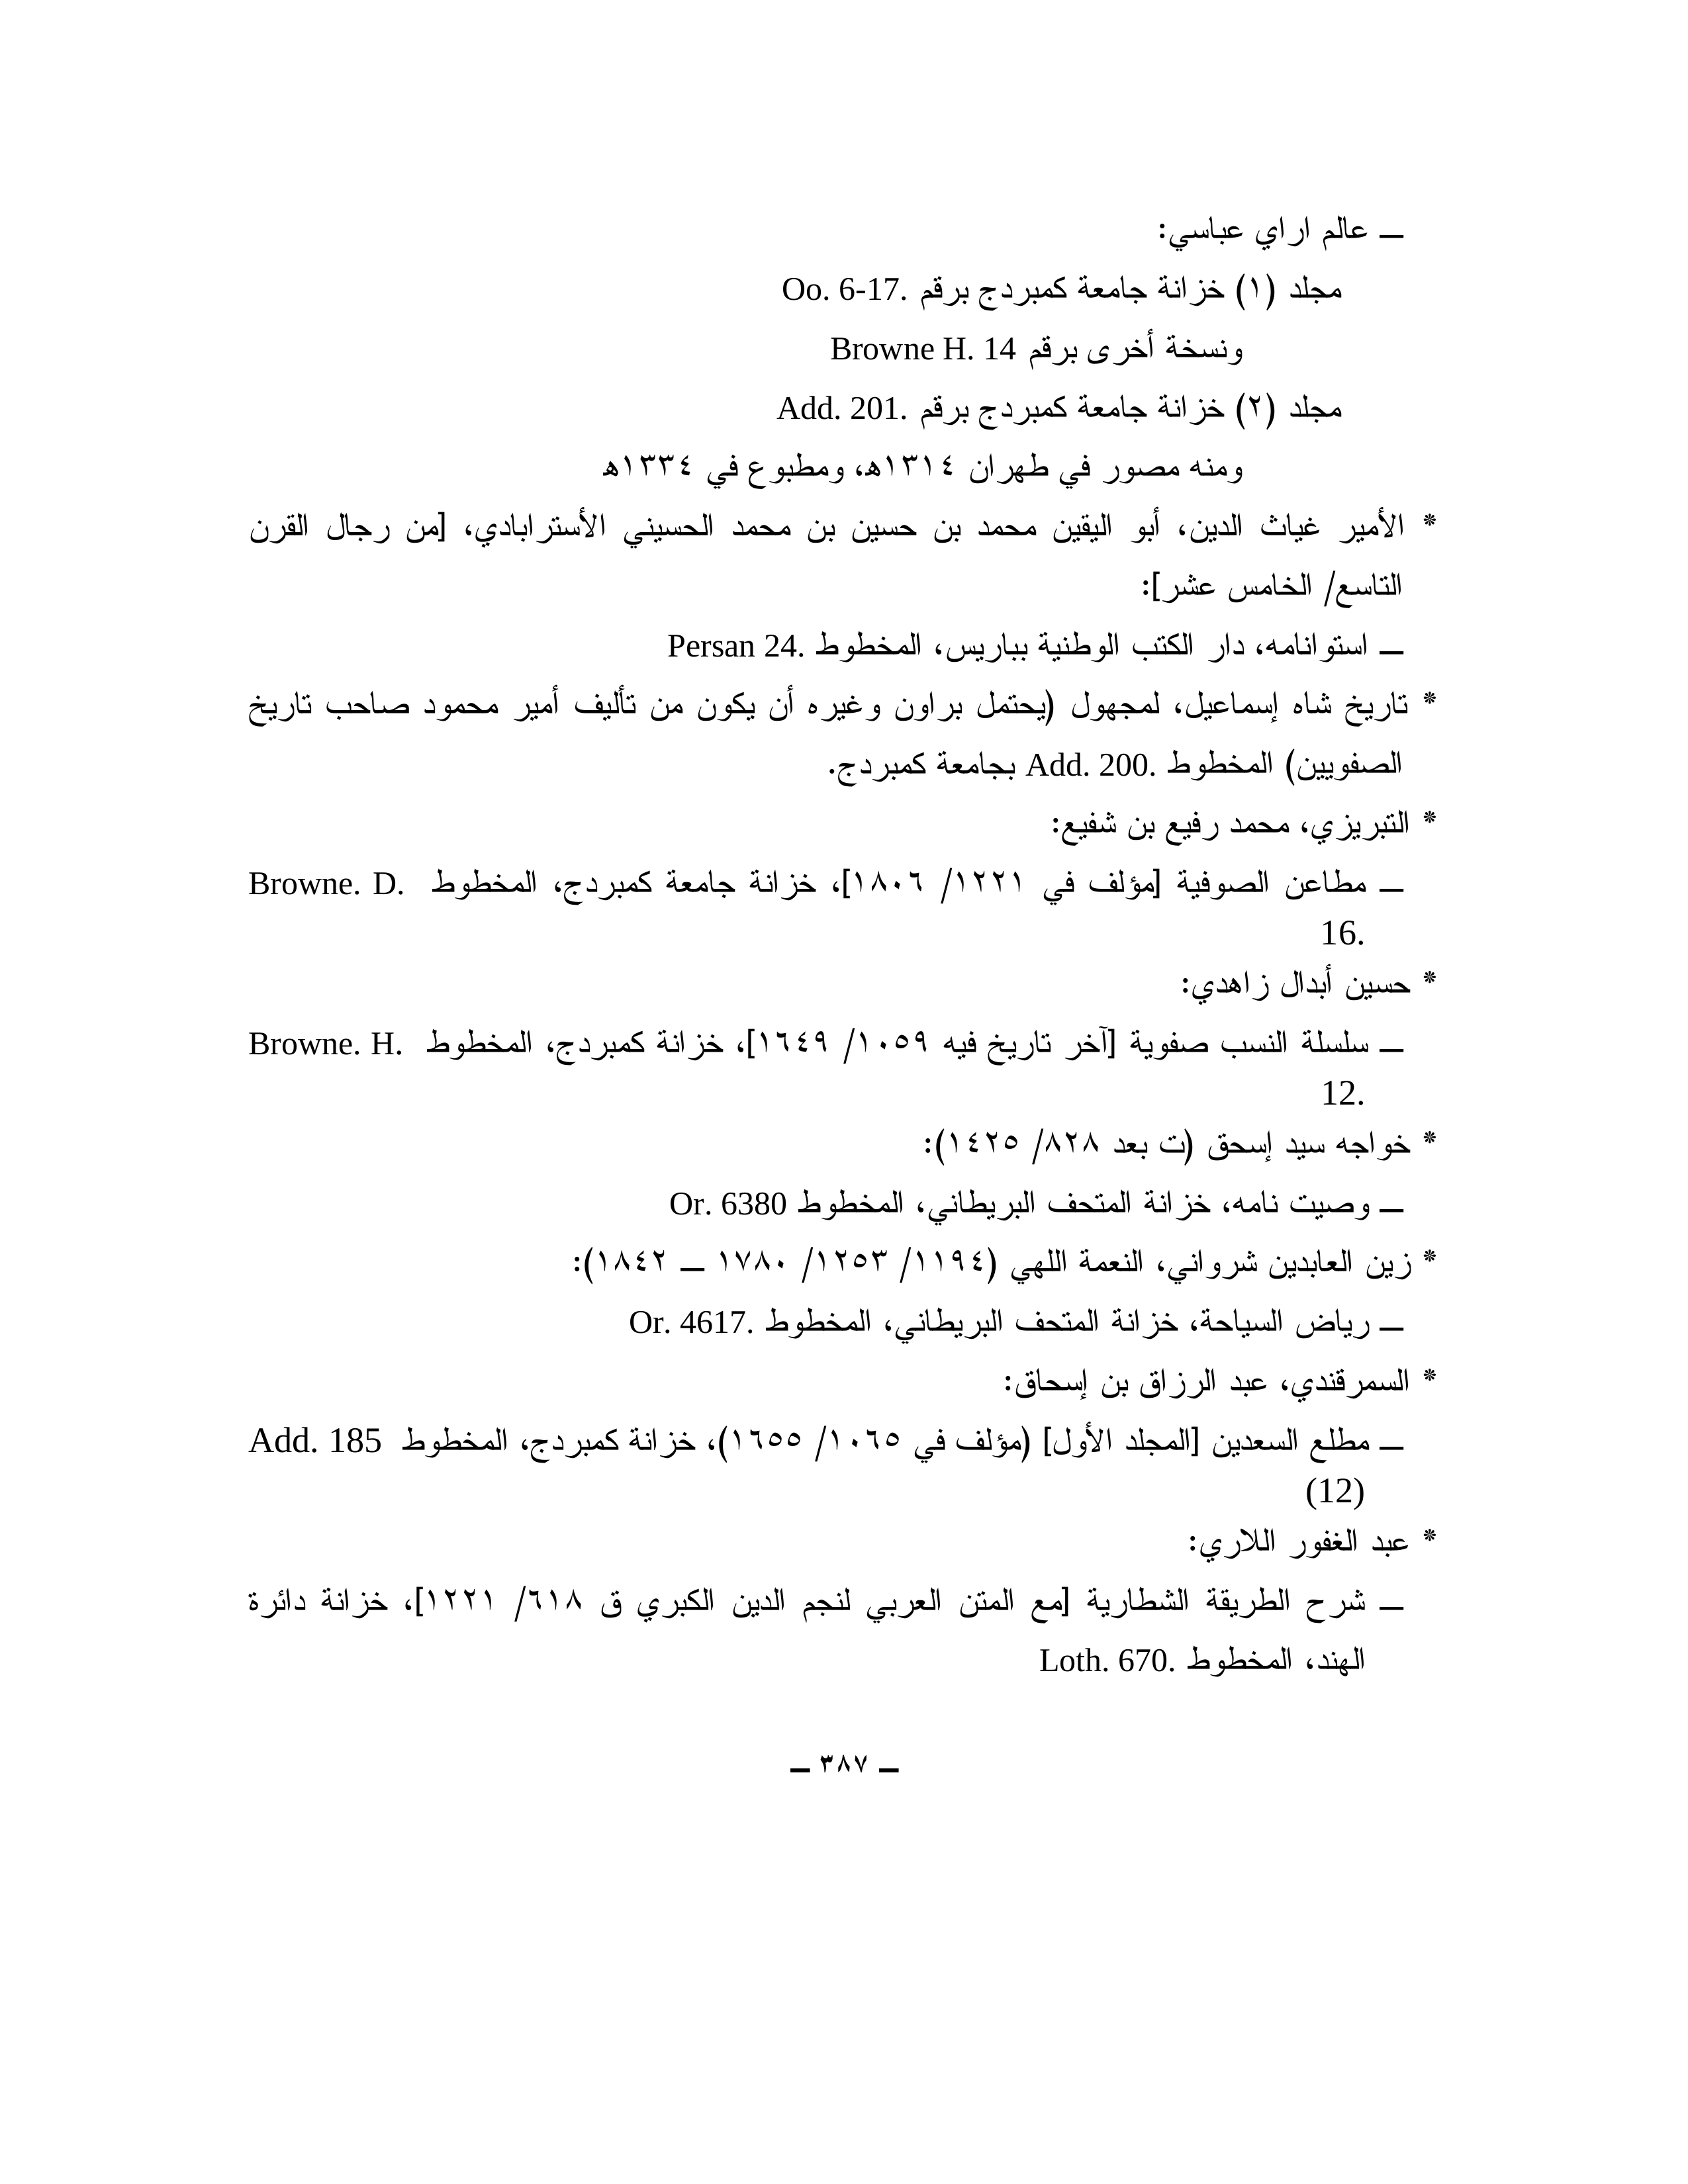 ـــ عالم اراي عباسي:
مجلد (١) خزانة جامعة كمبردج برقم Oo. 6-17.
ونسخة أخرى برقم Browne H. 14
مجلد (٢) خزانة جامعة كمبردج برقم Add. 201.
ومنه مصور في طهران ١٣١٤هـ، ومطبوع في ١٣٣٤هـ
* الأمير غياث الدين، أبو اليقين محمد بن حسين بن محمد الحسيني الأسترابادي، [من رجال القرن
التاسع/ الخامس عشر]:
ـــ استوانامه، دار الكتب الوطنية بباريس، المخطوط Persan 24.
* تاريخ شاه إسماعيل، لمجهول (يحتمل براون وغيره أن يكون من تأليف أمير محمود صاحب تاريخ
الصفويين) المخطوط Add. 200. بجامعة كمبردج.
* التبريزي، محمد رفيع بن شفيع:
ـــ مطاعن الصوفية [مؤلف في ١٢٢١/ ١٨٠٦]، خزانة جامعة كمبردج، المخطوط Browne. D.
16.
* حسين أبدال زاهدي:
ـــ سلسلة النسب صفوية [آخر تاريخ فيه ١٠٥٩/ ١٦٤٩]، خزانة كمبردج، المخطوط Browne. H.
12.
* خواجه سيد إسحق (ت بعد ٨٢٨/ ١٤٢٥):
ـــ وصيت نامه، خزانة المتحف البريطاني، المخطوط Or. 6380
* زين العابدين شرواني، النعمة اللهي (١١٩٤/ ١٢٥٣/ ١٧٨٠ ـــ ١٨٤٢):
ـــ رياض السياحة، خزانة المتحف البريطاني، المخطوط Or. 4617.
* السمرقندي، عبد الرزاق بن إسحاق:
ـــ مطلع السعدين [المجلد الأول] (مؤلف في ١٠٦٥/ ١٦٥٥)، خزانة كمبردج، المخطوط Add. 185
(12)
* عبد الغفور اللاري:
ـــ شرح الطريقة الشطارية [مع المتن العربي لنجم الدين الكبري ق ٦١٨/ ١٢٢١]، خزانة دائرة
الهند، المخطوط Loth. 670.
ـــ ٣٨٧ ـــ